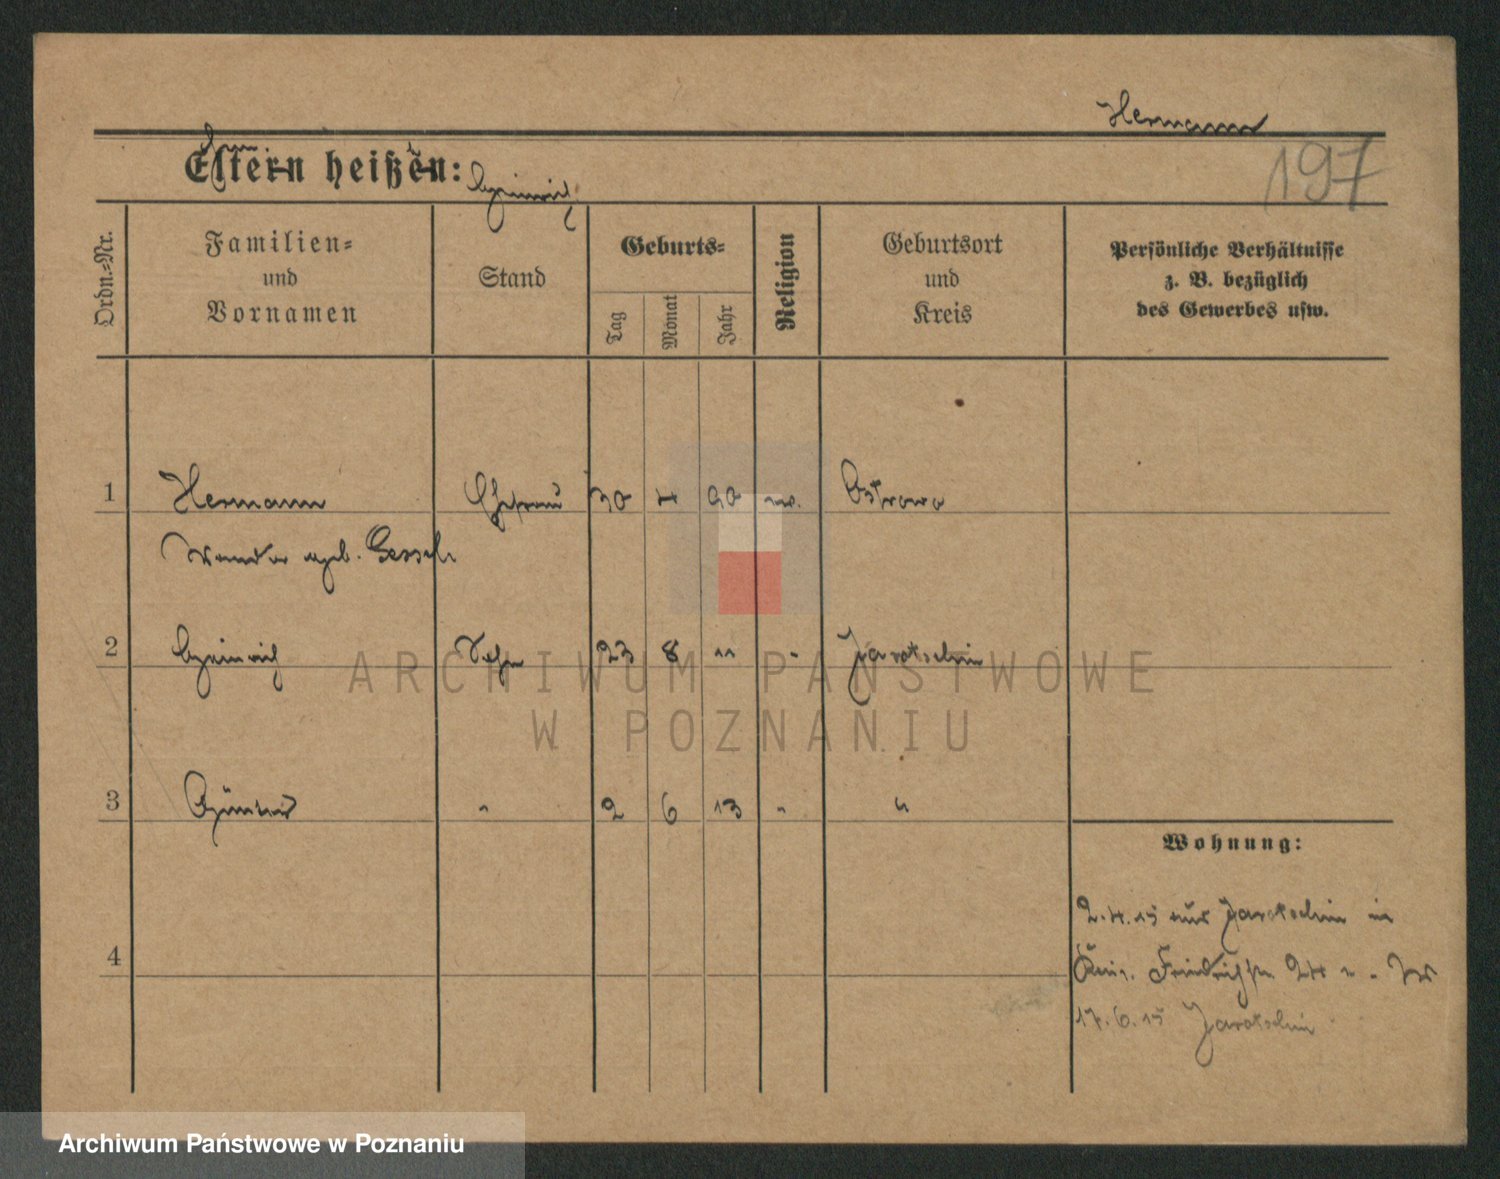 Hermann
197
Eltern heißen:
Heinrich
Ordn.-Nr.
Familien-
und
Vornamen
Stand
Geburts-
Tag
Monat
Jahr
Religion
Geburtsort
und
Kreis
Persönliche Verhältnisse
z. B. bezüglich
des Gewerbes usw.
1 Hermann Ehefrau 30 1 90 Ostrowo
Wanda geb.
2 Heinrich Sohn 23 8 " " Jarotschin
3 Günter " 2 6 13 " "
Wohnung:
2.4.15 aus Jarotschin in
Friedrichstr. 24
17.6.15 Jarotschin
4
ARCHIWUM PAŃSTWOWE
W POZNANIU
Archiwum Państwowe w Poznaniu